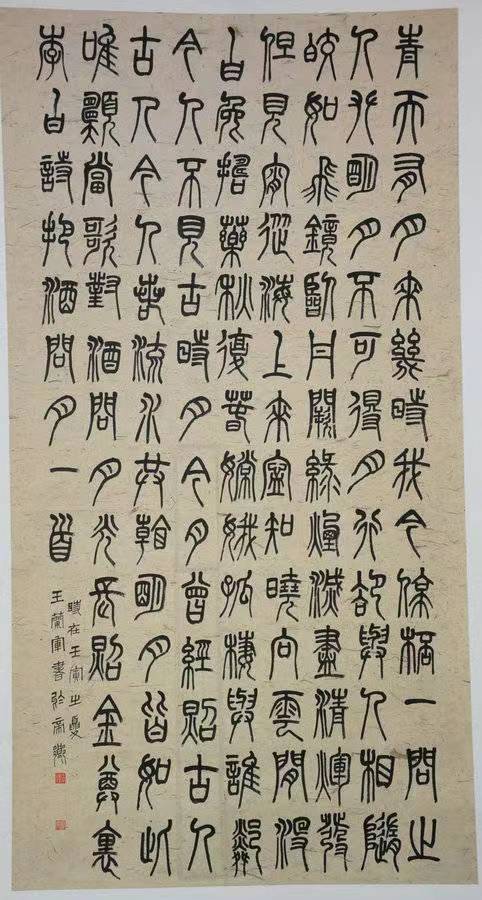 青天有月來幾時我今停杯一問之
人攀明月不可得月行卻與人相隨
皎如飛鏡臨丹闕綠煙滅盡清輝發
但見宵從海上來寧知曉向雲間沒
白兔搗藥秋復春嫦娥孤棲與誰鄰
今人不見古時月今月曾經照古人
古人今人若流水共看明月皆如此
唯願當歌對酒問月光長照金尊裏
李白詩把酒問月一首
時在壬寅之夏
王軍書於